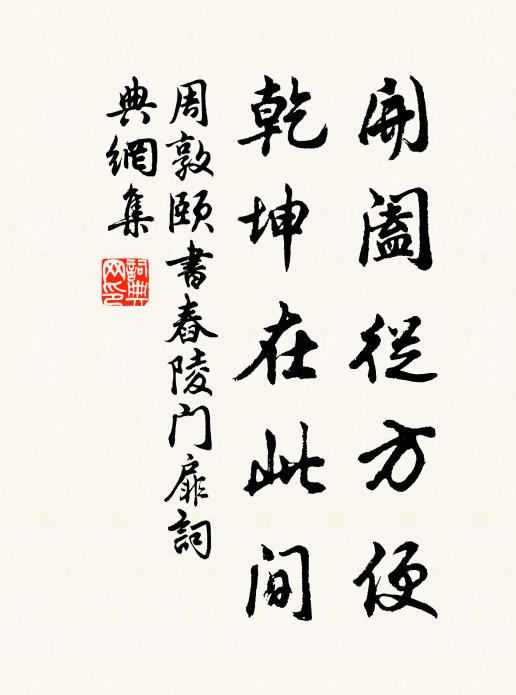 開闔從方便
乾坤在此間
周敦頤書舂陵門扉詞
典網集
詞典
网印